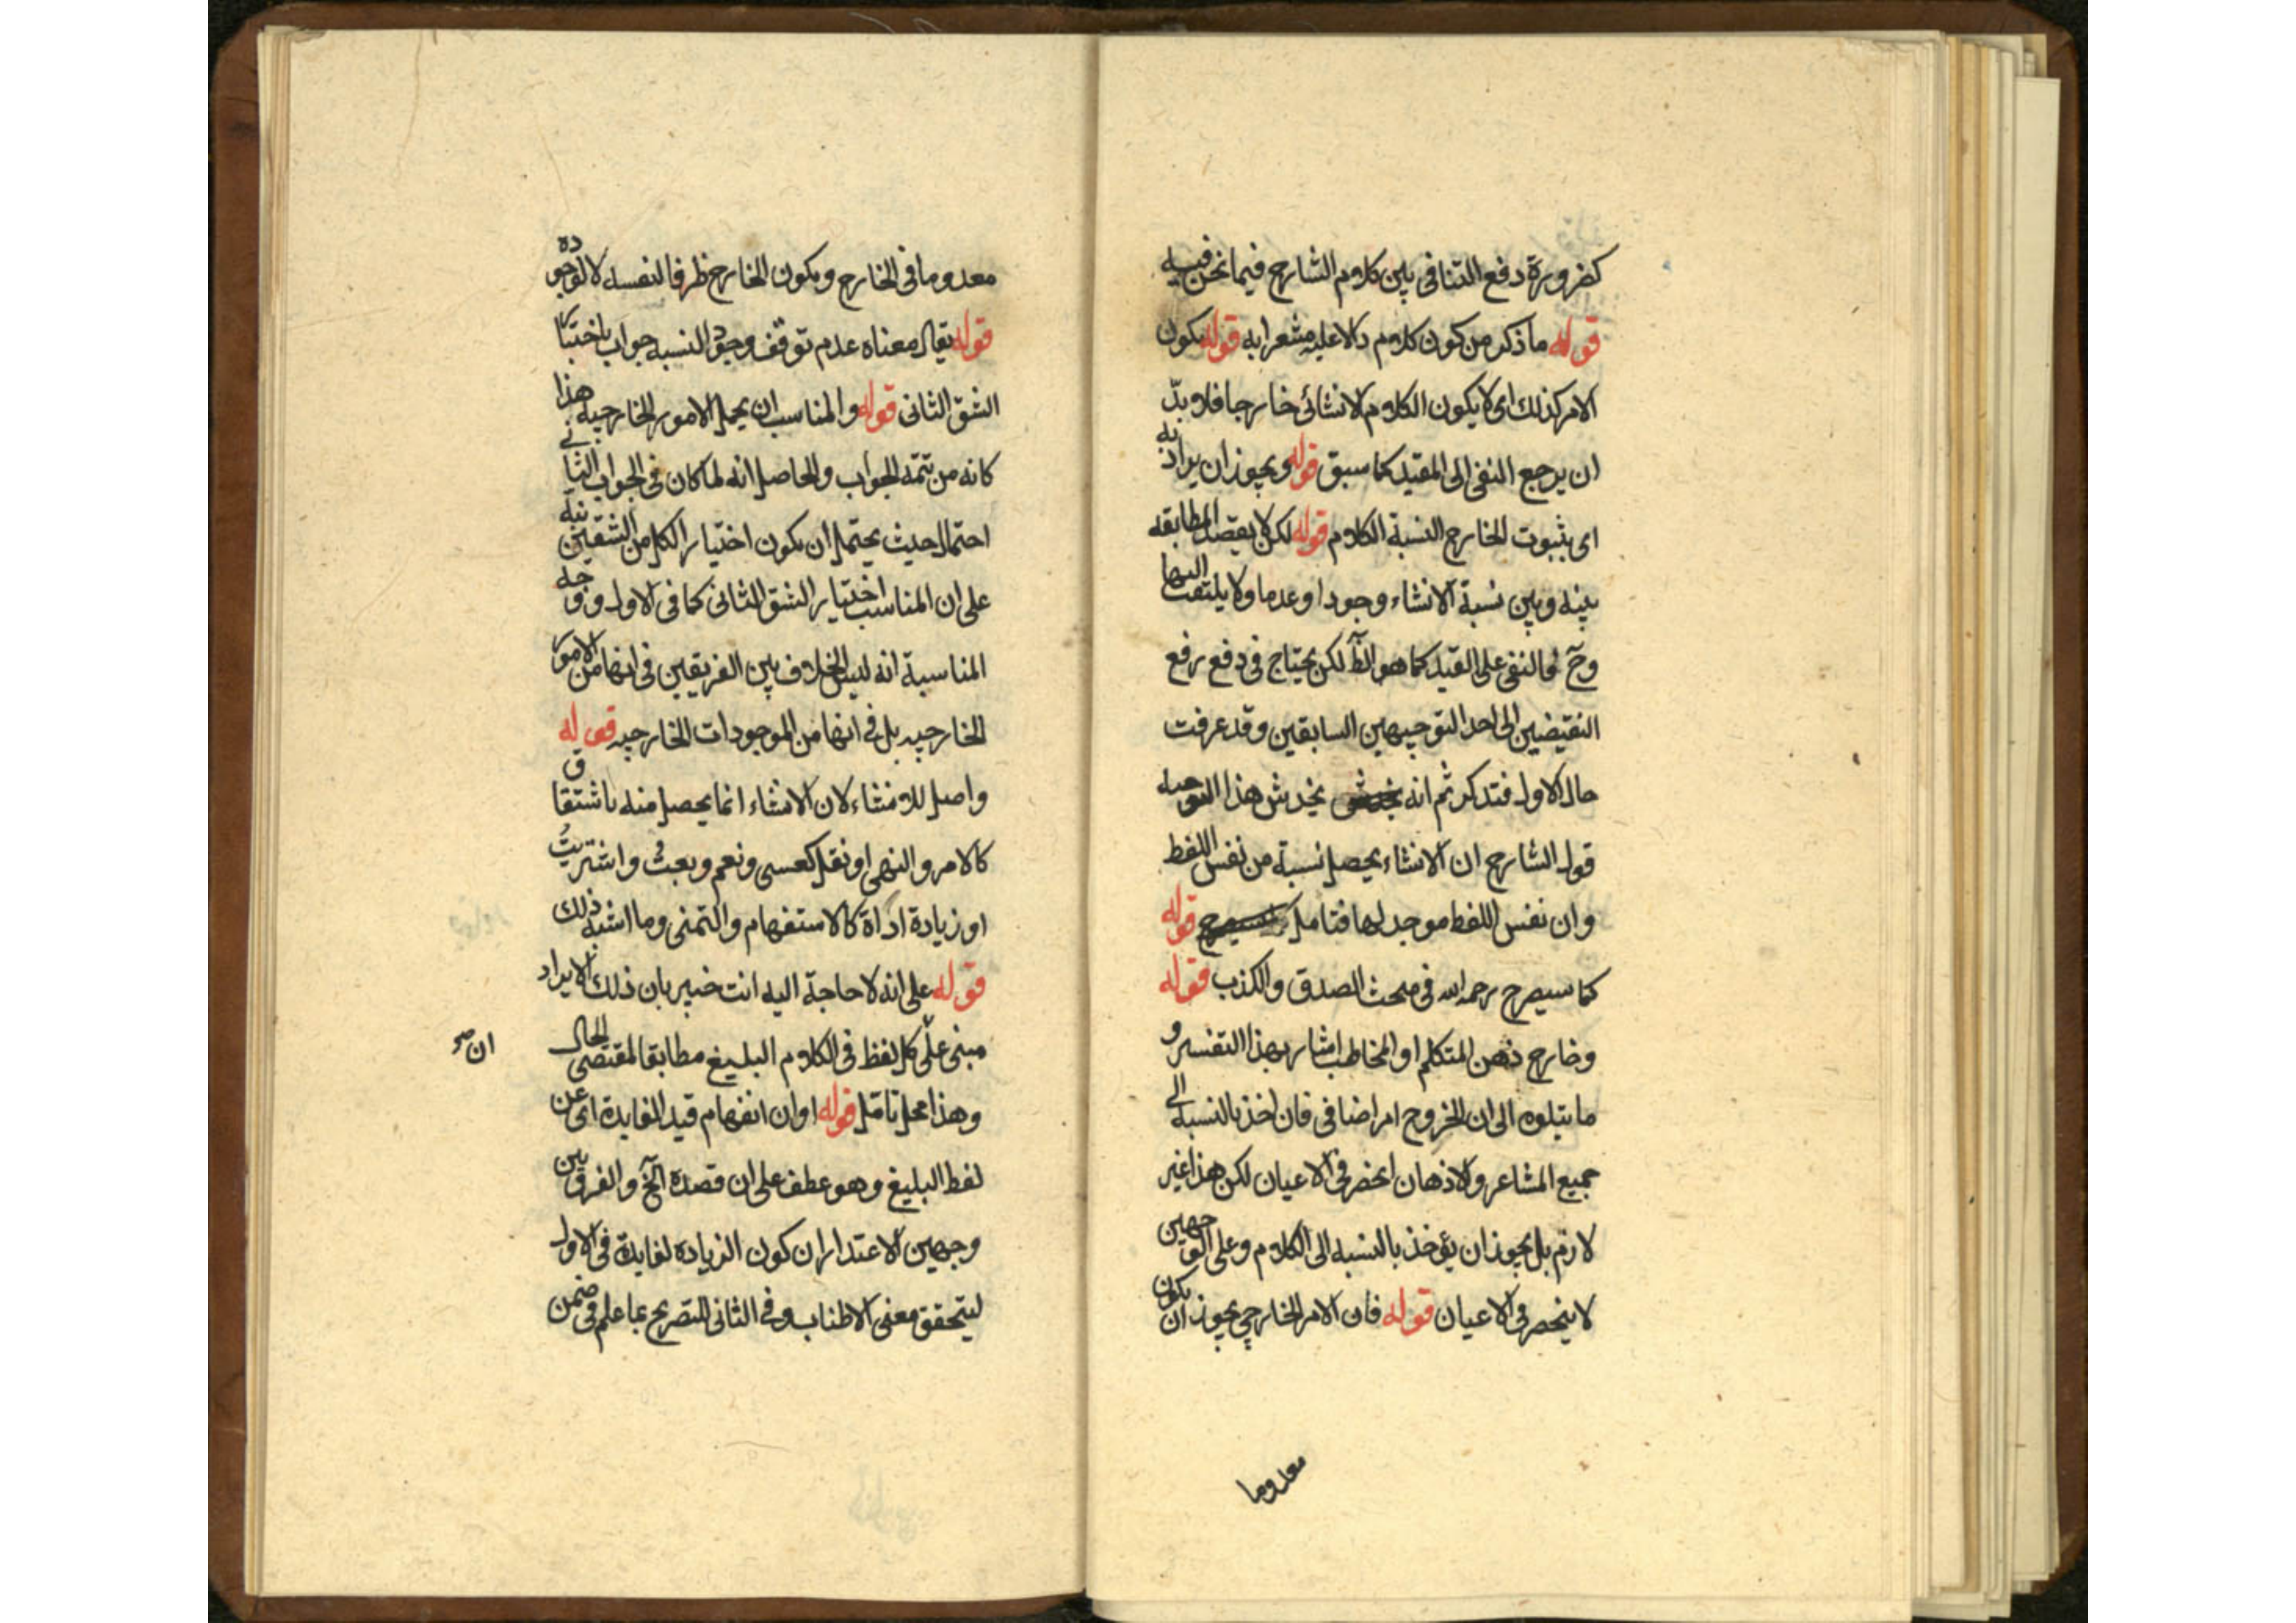 كضرورة دفع التنافى بين كلام الشارح فيما نحن فيه
قوله ما ذكر من كون كلام دالا عليه مشعرا به قوله يكون
الامر كذلك اى لا يكون الكلام الانشائى خارجا فلا بدّ
ان يرجع النفى الى المقيد كما سبق قوله ويجوز ان يراد به
اى بثبوت الخارج النسبة الكلام قوله لكن لا بقصد المطابقه
بينه وبين نسبة الانشاء وجودا وعدما ولا يلتفت اليها
وح فالنفى على القيد كما هو الظ لكن يحتاج فى دفع رفع
النقيضين الى احد التوجيهين السابقين وقد عرفت
حال الاول فتدكر ثم انه يخدش هذا التوجيه
قول الشارح ان الانشاء يحصل نسبة من نفس اللفط
وان نفس اللفط موجد لها فتامل قوله
كما سيصرح رحمه الله فى مبحث الصدق والكذب قوله
وخارج ذهن المتكلم او المخاطب اشار بهذا التفسير و
ما يتلوه الى ان الخروج امر اضافى فان اخذ بالنسبه الى
جميع المشاعر والاذهان انحصر فى الاعيان لكن هذا غير
لازم بل يجوز ان يؤخذ بالنسبه الى الكلام وعلى الوجهين
لا ينحصر فى الاعيان قوله فان الامر الخارجى يجوز ان يكون
معدوما
معدوما فى الخارج ويكون الخارج ظرفا لنفسه لا لوجوده
قوله يقال معناه عدم توقف وجود النسبه جواب باختيا
الشق الثانى قوله والمناسب ان يحمل الامور الخارجيه هذا
كانه من تتمه الجواب والحاصل انه لما كان فى الجواب الثانى
احتمال حيث يحتمل ان يكون اختيار الكل من الشقين نبه
على ان المناسب اختيار الشق الثانى كما فى الاول ووجه
المناسبة انه ليس الخلاف بين الفريقين فى انها من الامور
الخارجيه بل فى انها من الموجودات الخارجيه قوله
واصل للانشاء لان الانشاء انما يحصل منه باشتقاق
كالامر والنهى او نقل كعسى ونعم وبعت واشتريت
او زيادة اداة كالاستفهام والتمنى وما اشبه ذلك
قوله على انه لا حاجة اليه انت خبير بان ذلك الايراد
مبنى على كل لفظ فى الكلام البليغ مطابقا لمقتضى الحال
ان صح
وهذا محل تامل قوله او ان انفهام قيد الفايدة اى عن
لفط البليغ وهو عطف على ان قصده الخ والفرق بين
وجهين الاعتدار ان كون الزياده لفايدة فى الاول
ليتحقق معنى الاطناب وفى الثانى للتصريح بما علم فى ضمن